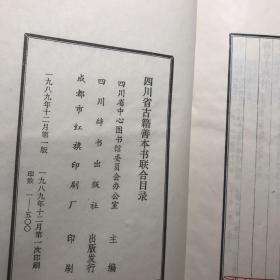 四川省古籍善本书联合目录
四川省中心图书馆委员会办公室 主编
四川辞书出版社 出版发行
成都市红旗印刷厂 印刷
一九八九年十二月第一版 一九八九年十二月第一次印刷
印数 一—五〇〇